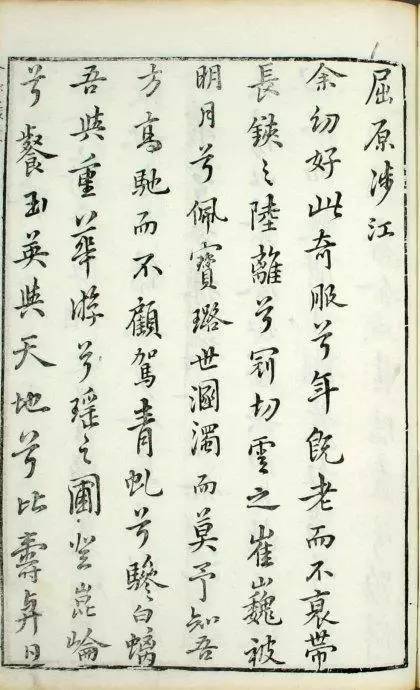 屈原涉江
余幼好此奇服兮年既老而不衰帶
長鋏之陸離兮冠切雲之崔巍被
明月兮佩寶璐世溷濁而莫予知吾
方高馳而不顧駕青虬兮驂白螭
吾與重華遊兮瑤之圃登崑崙
兮餐玉英與天地兮比壽與日